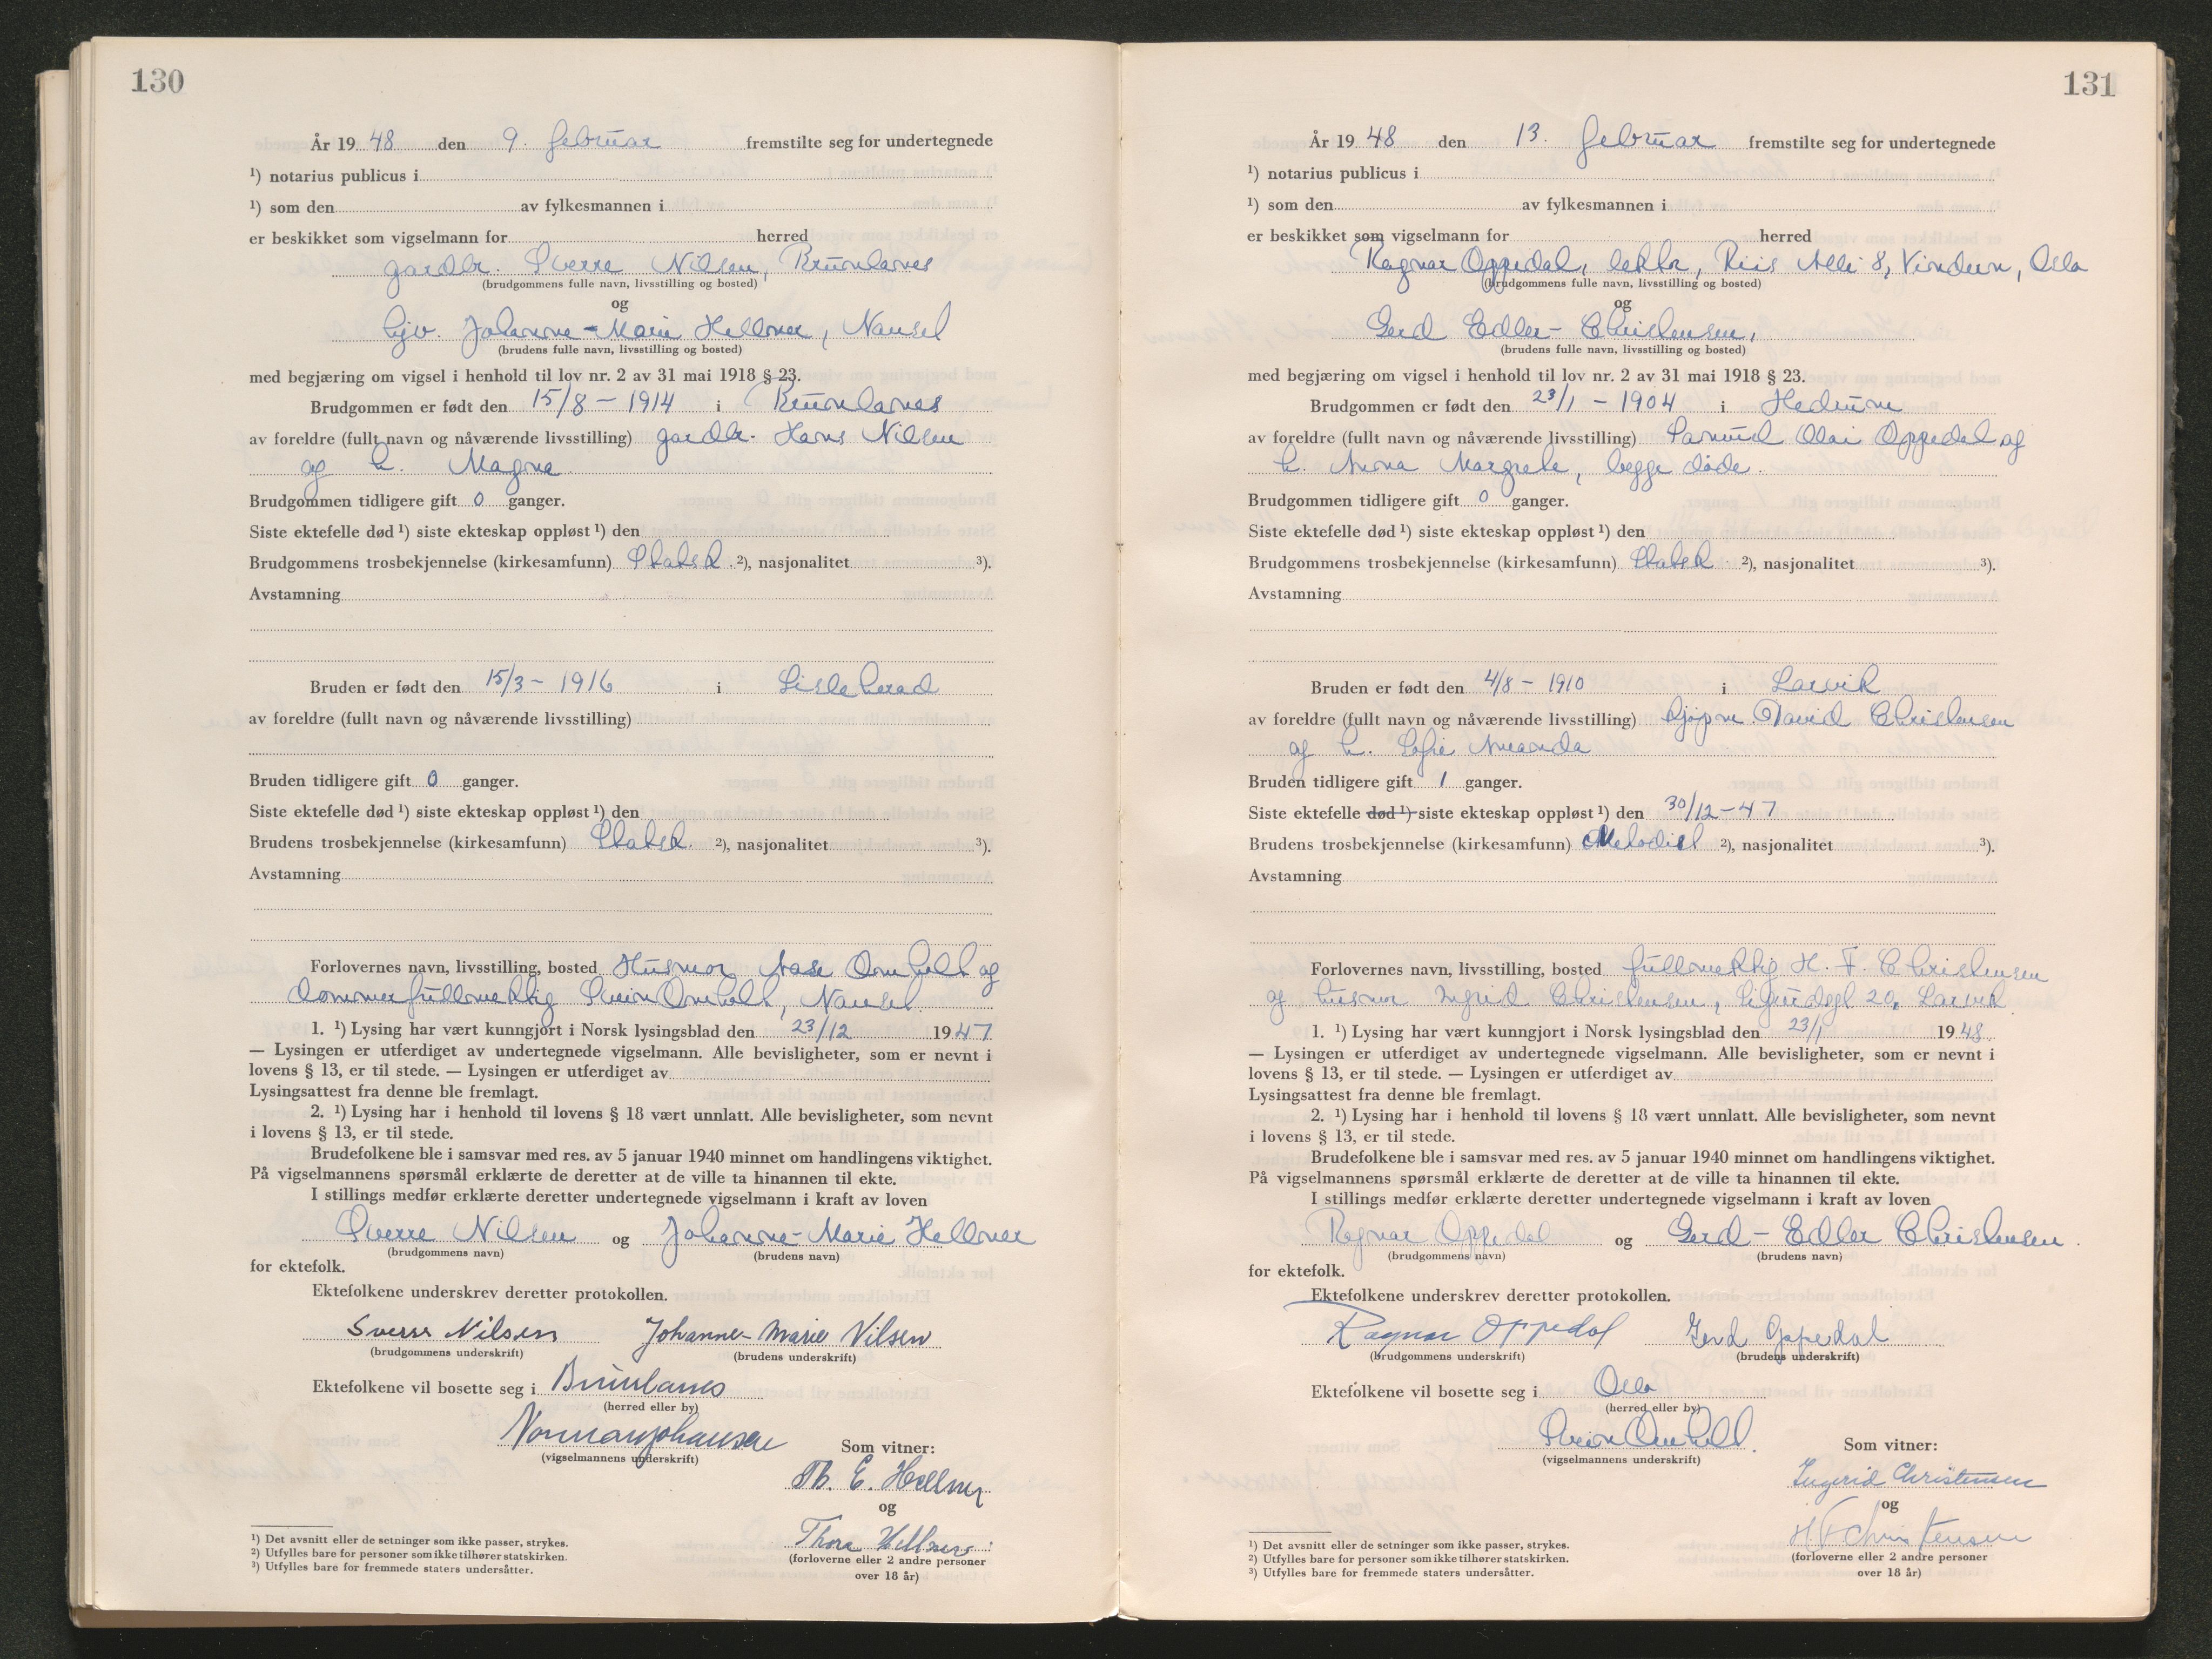 130
År 1948 den 9. februar fremstilte seg for undertegnede
¹) notarius publicus i
¹) som den av fylkesmannen i
er beskikket som vigselmann for herred
gardbr. Sverre Nilsen, Brunlanes
(brudgommens fulle navn, livsstilling og bosted)
og
hjv. Johanne-Marie Hellner, Nanset
(brudens fulle navn, livsstilling og bosted)
med begjæring om vigsel i henhold til lov nr. 2 av 31 mai 1918 § 23.
Brudgommen er født den 15/8 - 1914 i Brunlanes
av foreldre (fullt navn og nåværende livsstilling) gardbr. Hans Nilsen
og h. Magna
Brudgommen tidligere gift 0 ganger.
Siste ektefelle død ¹) siste ekteskap oppløst ¹) den
Brudgommens trosbekjennelse (kirkesamfunn) Statsk. ²), nasjonalitet ³).
Avstamning
Bruden er født den 15/3 - 1916 i Lisleherad
av foreldre (fullt navn og nåværende livsstilling)
Bruden tidligere gift 0 ganger.
Siste ektefelle død ¹) siste ekteskap oppløst ¹) den
Brudens trosbekjennelse (kirkesamfunn) Statsk. ²), nasjonalitet ³).
Avstamning
Forlovernes navn, livsstilling, bosted Husmor Aase Omholt og
dommerfullmektig Svein Omholt, Nanset
1. ¹) Lysing har vært kunngjort i Norsk lysingsblad den 23/12 1947
— Lysingen er utferdiget av undertegnede vigselmann. Alle bevisligheter, som er nevnt i
lovens § 13, er til stede. — Lysingen er utferdiget av
Lysingsattest fra denne ble fremlagt.
2. ¹) Lysing har i henhold til lovens § 18 vært unnlatt. Alle bevisligheter, som nevnt
i lovens § 13, er til stede.
Brudefolkene ble i samsvar med res. av 5 januar 1940 minnet om handlingens viktighet.
På vigselmannens spørsmål erklærte de deretter at de ville ta hinannen til ekte.
I stillings medfør erklærte deretter undertegnede vigselmann i kraft av loven
Sverre Nilsen og Johanne-Marie Hellner
(brudgommens navn) (brudens navn)
for ektefolk.
Ektefolkene underskrev deretter protokollen.
Sverre Nilsen Johanne-Marie Nilsen
(brudgommens underskrift) (brudens underskrift)
Ektefolkene vil bosette seg i Brunlanes
(herred eller by)
Norman Johansen
(vigselmannens underskrift)
Som vitner:
Th. E. Hellner
og
Thora Hellner
(forloverne eller 2 andre personer
over 18 år)
¹) Det avsnitt eller de setninger som ikke passer, strykes.
²) Utfylles bare for personer som ikke tilhører statskirken.
³) Utfylles bare for fremmede staters undersåtter.
131
År 1948 den 13. februar fremstilte seg for undertegnede
¹) notarius publicus i
¹) som den av fylkesmannen i
er beskikket som vigselmann for herred
Ragnar Oppedal, lektor, Riis Allé 8, Vindern, Oslo
(brudgommens fulle navn, livsstilling og bosted)
og
Gerd Edler-Christensen,
(brudens fulle navn, livsstilling og bosted)
med begjæring om vigsel i henhold til lov nr. 2 av 31 mai 1918 § 23.
Brudgommen er født den 23/1 - 1904 i Hedrum
av foreldre (fullt navn og nåværende livsstilling) Samuel Olai Oppedal og
h. Anna Margrete, begge døde.
Brudgommen tidligere gift 0 ganger.
Siste ektefelle død ¹) siste ekteskap oppløst ¹) den
Brudgommens trosbekjennelse (kirkesamfunn) Statsk. ²), nasjonalitet ³).
Avstamning
Bruden er født den 4/8 - 1910 i Larvik
av foreldre (fullt navn og nåværende livsstilling) kjøpm. David Christensen
og h. Sofie Amanda
Bruden tidligere gift 1 ganger.
Siste ektefelle død ¹) siste ekteskap oppløst ¹) den 30/12-47
Brudens trosbekjennelse (kirkesamfunn) Metodist ²), nasjonalitet ³).
Avstamning
Forlovernes navn, livsstilling, bosted fullmektig H. F. Christensen
og husmor Ingrid Christensen, Sigurdsgt 20, Larvik
1. ¹) Lysing har vært kunngjort i Norsk lysingsblad den 23/1 1948
— Lysingen er utferdiget av undertegnede vigselmann. Alle bevisligheter, som er nevnt i
lovens § 13, er til stede. — Lysingen er utferdiget av
Lysingsattest fra denne ble fremlagt.
2. ¹) Lysing har i henhold til lovens § 18 vært unnlatt. Alle bevisligheter, som nevnt
i lovens § 13, er til stede.
Brudefolkene ble i samsvar med res. av 5 januar 1940 minnet om handlingens viktighet.
På vigselmannens spørsmål erklærte de deretter at de ville ta hinannen til ekte.
I stillings medfør erklærte deretter undertegnede vigselmann i kraft av loven
Ragnar Oppedal og Gerd-Edler Christensen.
(brudgommens navn) (brudens navn)
for ektefolk.
Ektefolkene underskrev deretter protokollen.
Ragnar Oppedal Gerd Oppedal
(brudgommens underskrift) (brudens underskrift)
Ektefolkene vil bosette seg i Oslo
(herred eller by)
Svein Omholt.
(vigselmannens underskrift)
Som vitner:
Ingrid Christensen
og
H F Christensen
(forloverne eller 2 andre personer
over 18 år)
¹) Det avsnitt eller de setninger som ikke passer, strykes.
²) Utfylles bare for personer som ikke tilhører statskirken.
³) Utfylles bare for fremmede staters undersåtter.